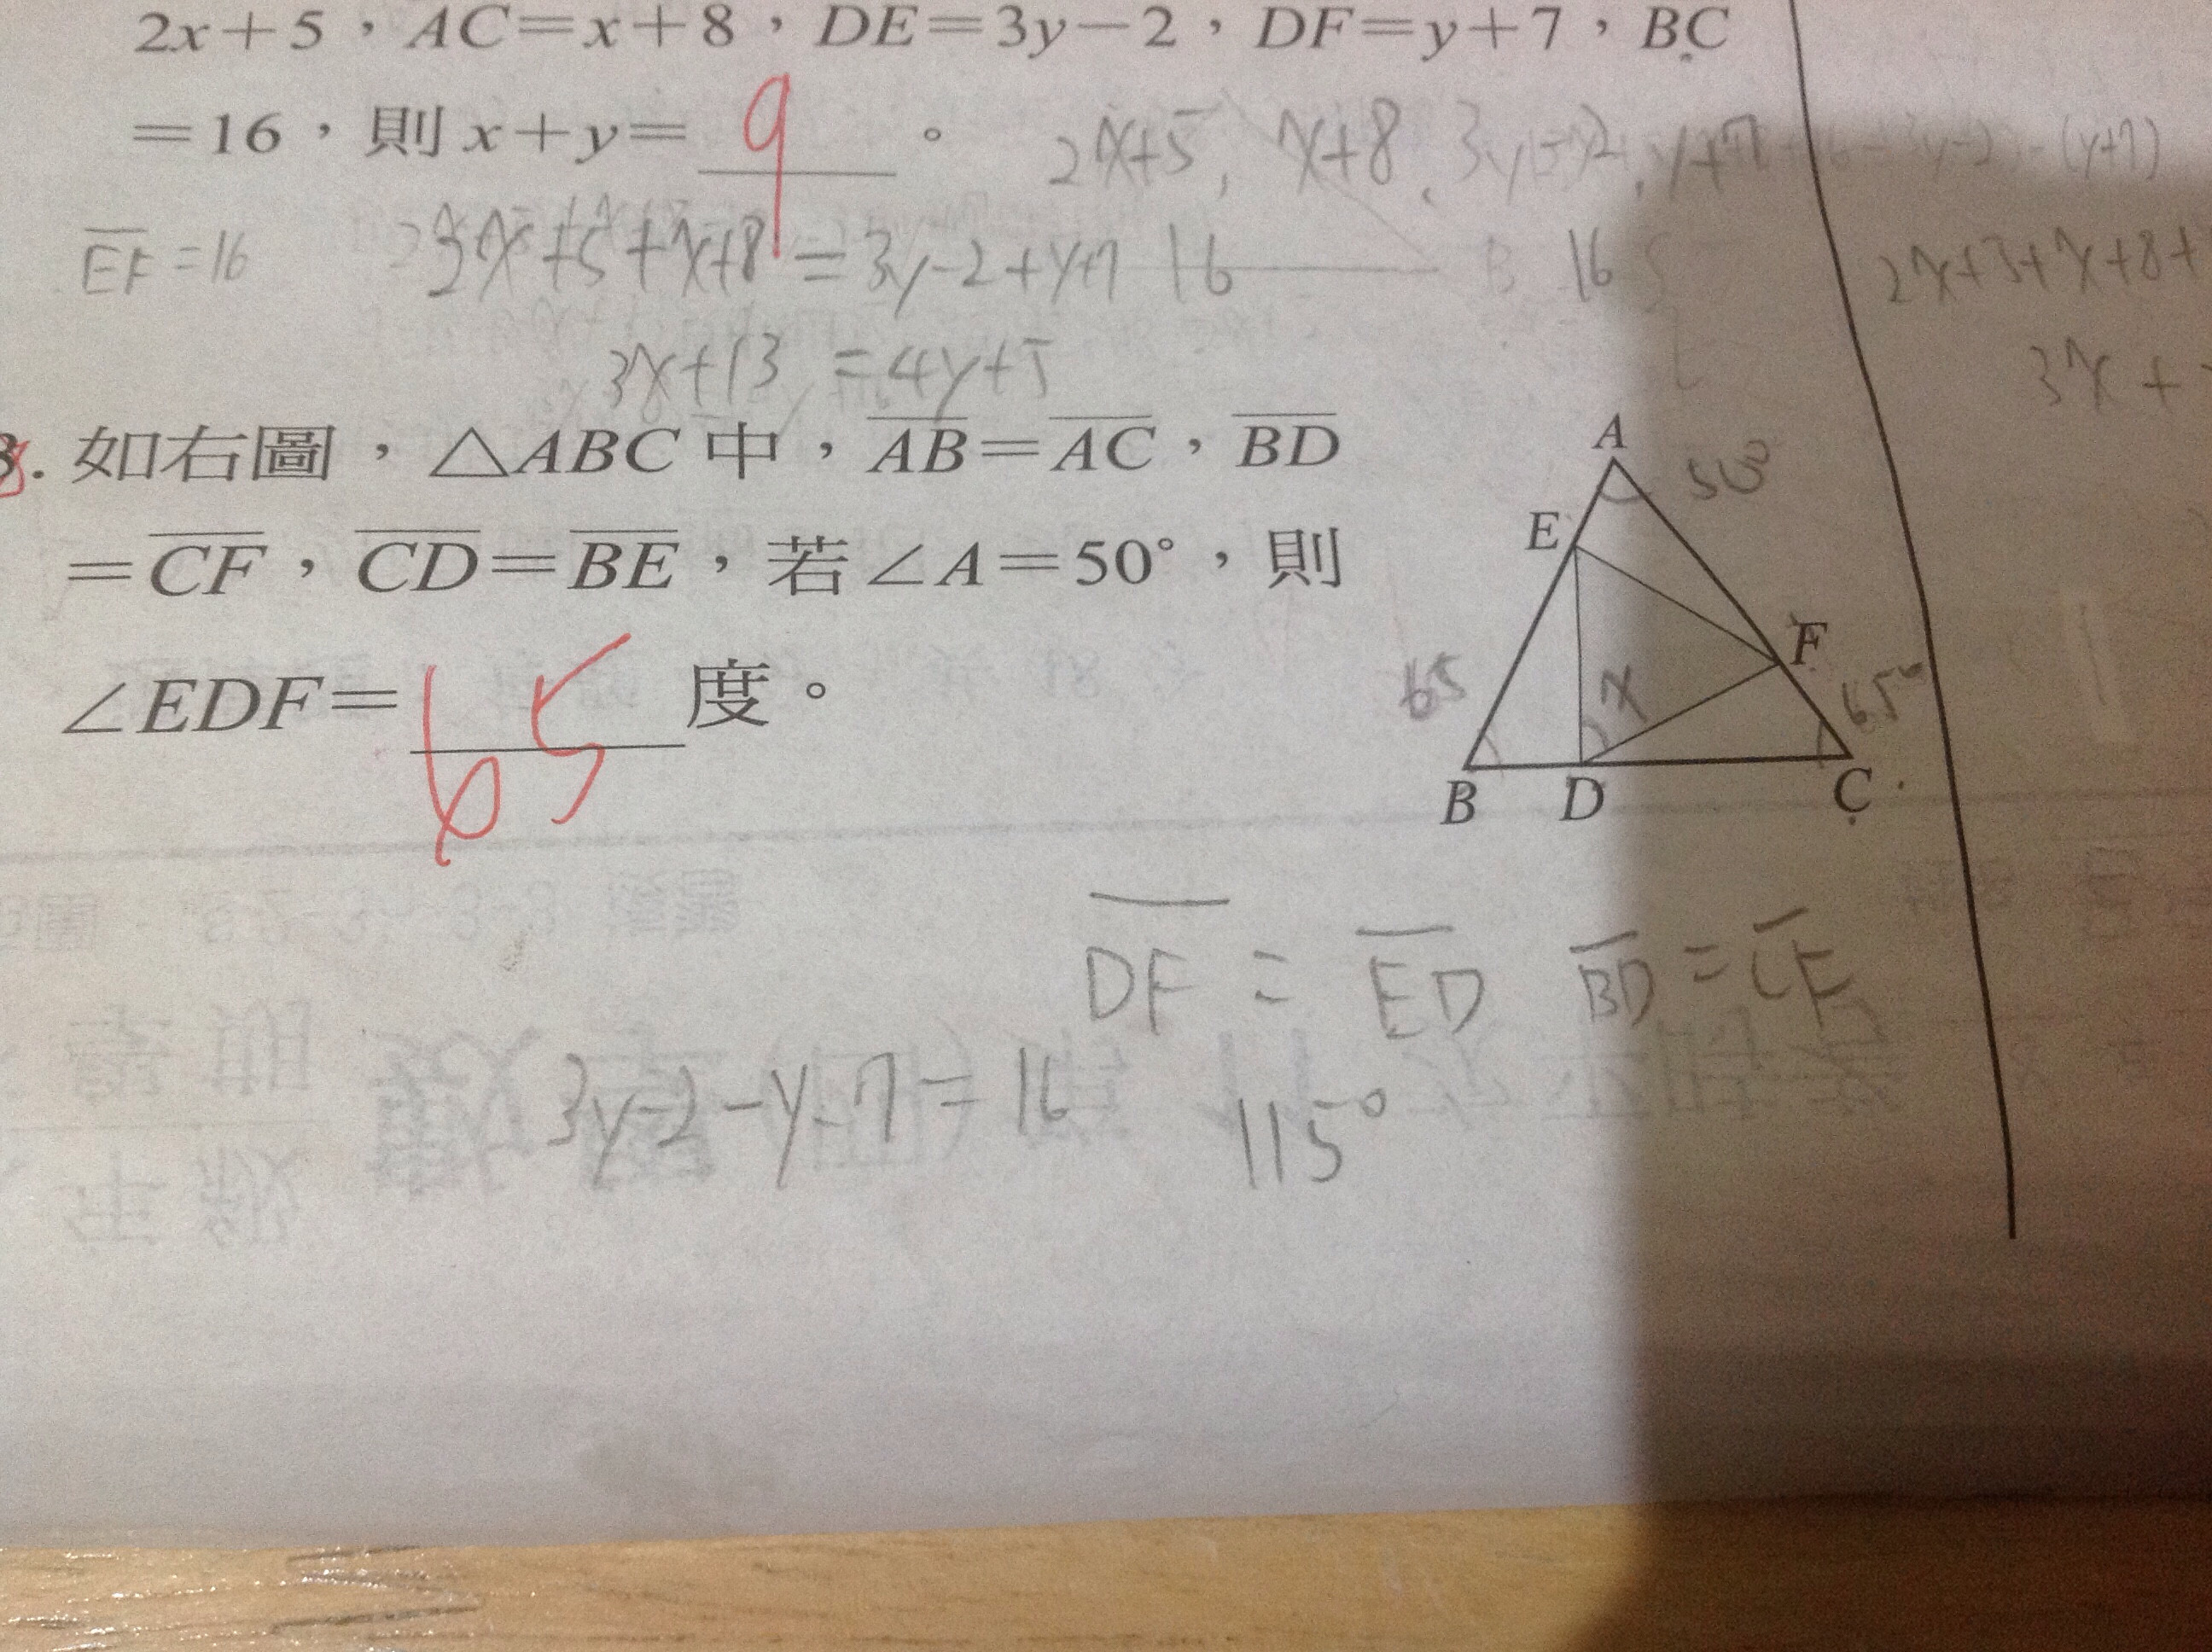 2x+5，AC=x+8，DE=3y−2，DF=y+7，BC
=16，則 x+y= 9 。
2x+5, x+8, 3y-2, y+7
EF=16
3x+5+x+8=3y-2+y+7 16
16
3x+13 =4y+5
如右圖，△ABC 中，AB=AC，BD
=CF，CD=BE，若∠A=50°，則
∠EDF= 65 度。
A
50°
E
F
65
x
65°
B D C
DF = ED BD = CF
3y-2-y-7=16 115°